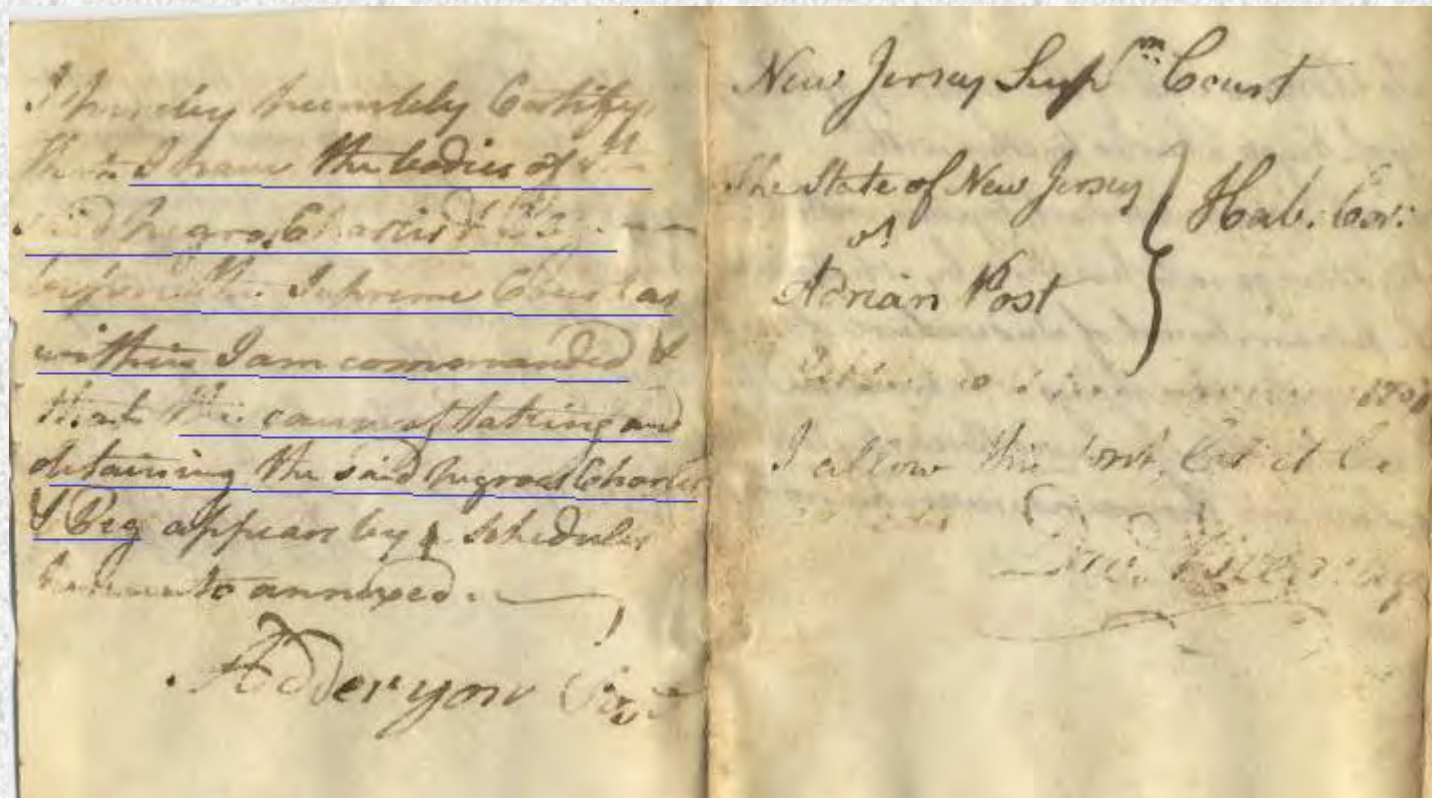 I hereby humbly Certify
that I have the bodies of the
said Negroes Charles & Peg
before the Supreme Court as
within I am commanded &
that the cause of taking and
detaining the said Negroes Charles
& Peg appears by schedule
hereunto annexed.
New Jersey Supm Court
The State of New Jersey
vs
Adrian Post
Hab. Cor:
I allow this writ, let it be